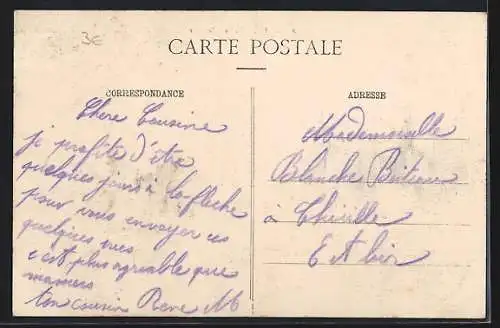 3E
CARTE POSTALE
CORRESPONDANCE
ADRESSE
Chere Cousine
je profite d'être
quelques jours à La fleche
pour vous envoyer ces
quelques vues
c'est plus agreable que
ton cousin Rene M
Mademoiselle
Blanche
à Thiville
E et Loir